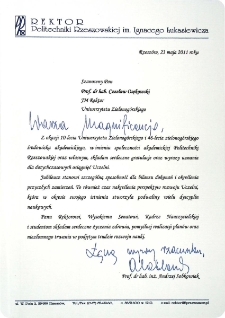 REKTOR
Politechniki Rzeszowskiej im. Ignacego Łukasiewicza
Rzeszów, 23 maja 2011 roku
Szanowny Pan
Prof. dr hab. Czesław Osękowski
JM Rektor
Uniwersytetu Zielonogórskiego
Magnificencjo,
Z okazji 10-lecia Uniwersytetu Zielonogórskiego i 46-lecia zielonogórskiego
środowiska akademickiego, w imieniu społeczności akademickiej Politechniki
Rzeszowskiej oraz własnym, składam serdeczne gratulacje oraz wyrazy uznania
dla dotychczasowych osiągnięć Uczelni.
Jubileusz stanowi szczególną sposobność dla bilansu dokonań i określenia
przyszłych zamierzeń. To również czas nakreślenia perspektyw rozwoju Uczelni,
która w okresie swojego istnienia stworzyła podwaliny wielu dyscyplin
naukowych.
Panu Rektorowi, Wysokiemu Senatowi, Kadrze Nauczycielskiej
i studentom składam serdeczne życzenia zdrowia, pomyślnej realizacji planów oraz
nieustannego trwania w
Łączę wyrazy szacunku,
Prof. dr hab. inż. Andrzej Sobkowiak